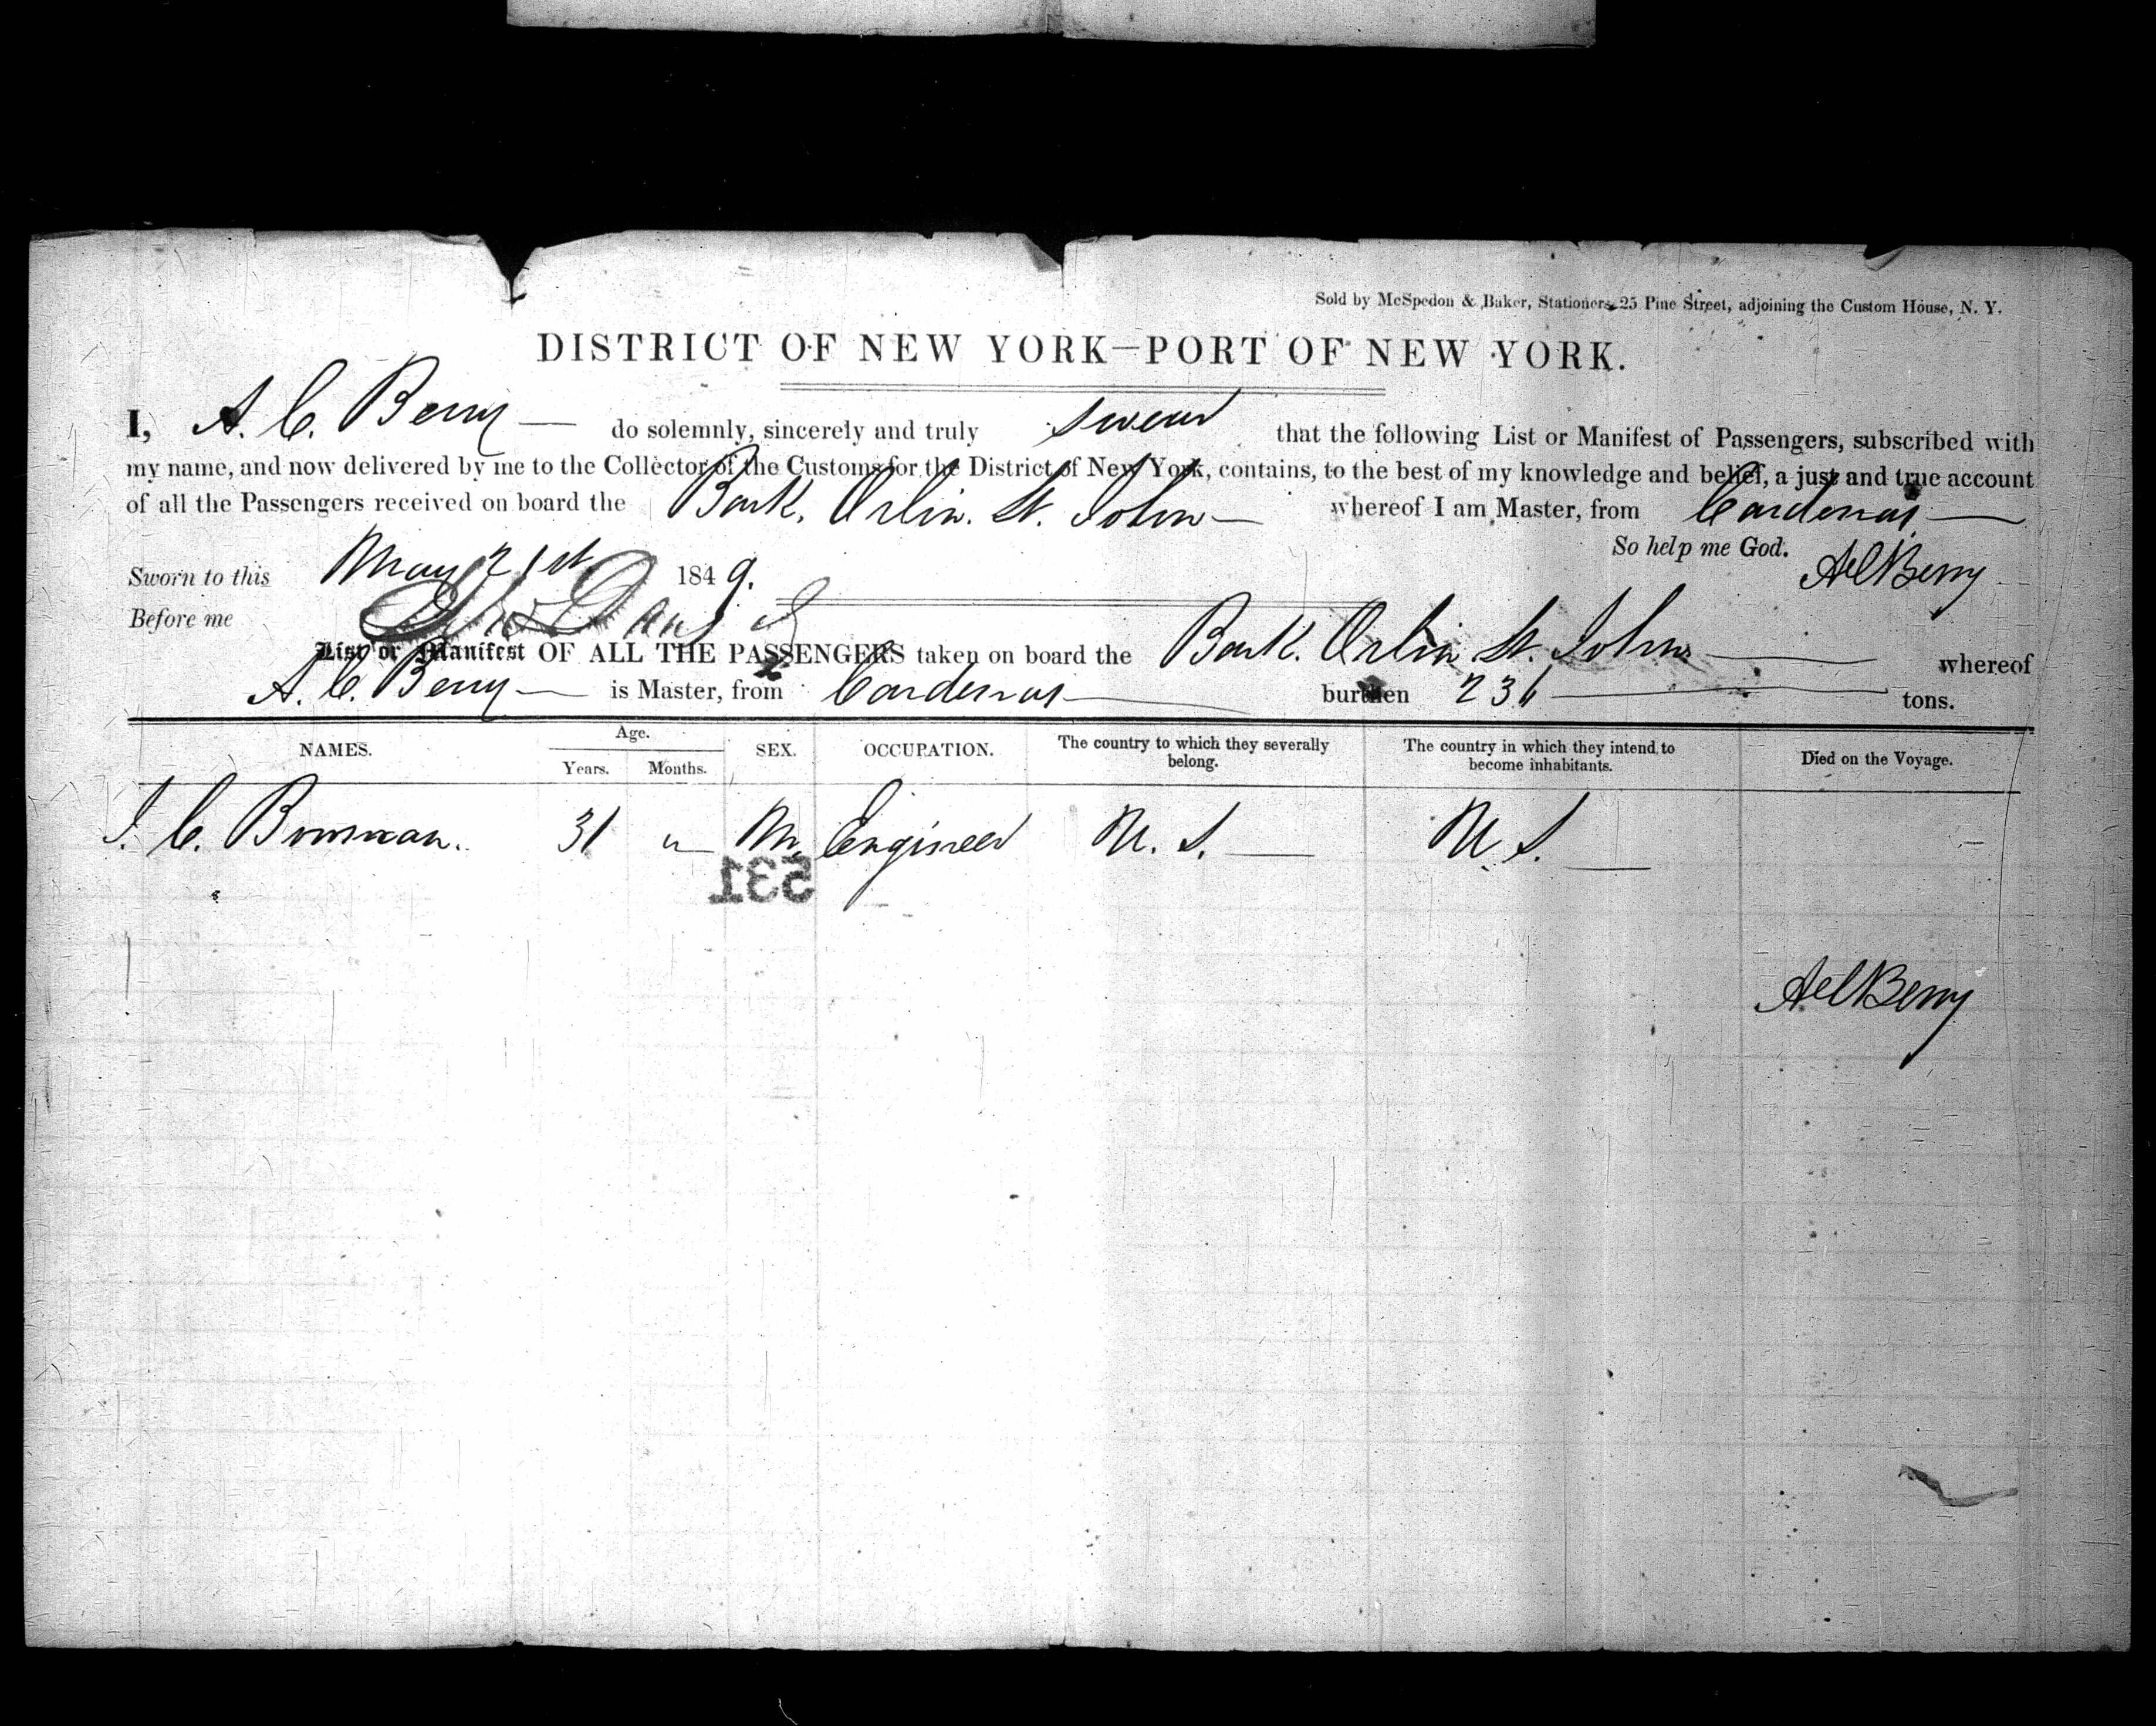 Sold by McSpedon & Baker, Stationers, 25 Pine Street, adjoining the Custom House, N. Y.
DISTRICT OF NEW YORK—PORT OF NEW YORK.
I, A. C. Berry — do solemnly, sincerely and truly swear that the following List or Manifest of Passengers, subscribed with
my name, and now delivered by me to the Collector of the Customs for the District of New York, contains, to the best of my knowledge and belief, a just and true account
of all the Passengers received on board the Bark. Orlin. St. John — whereof I am Master, from Cardenas —
So help me God. A C Berry
Sworn to this May 21st 1849.
Before me
List or Manifest OF ALL THE PASSENGERS taken on board the Bark. Orlin St. John — whereof
A. C. Berry — is Master, from Cardenas — burthen 236 — tons.
NAMES. Age. Years. Months. SEX. OCCUPATION. The country to which they severally belong. The country in which they intend to become inhabitants. Died on the Voyage.
C. 31 M. Engineer U. S. — U. S. —
531
A C Berry